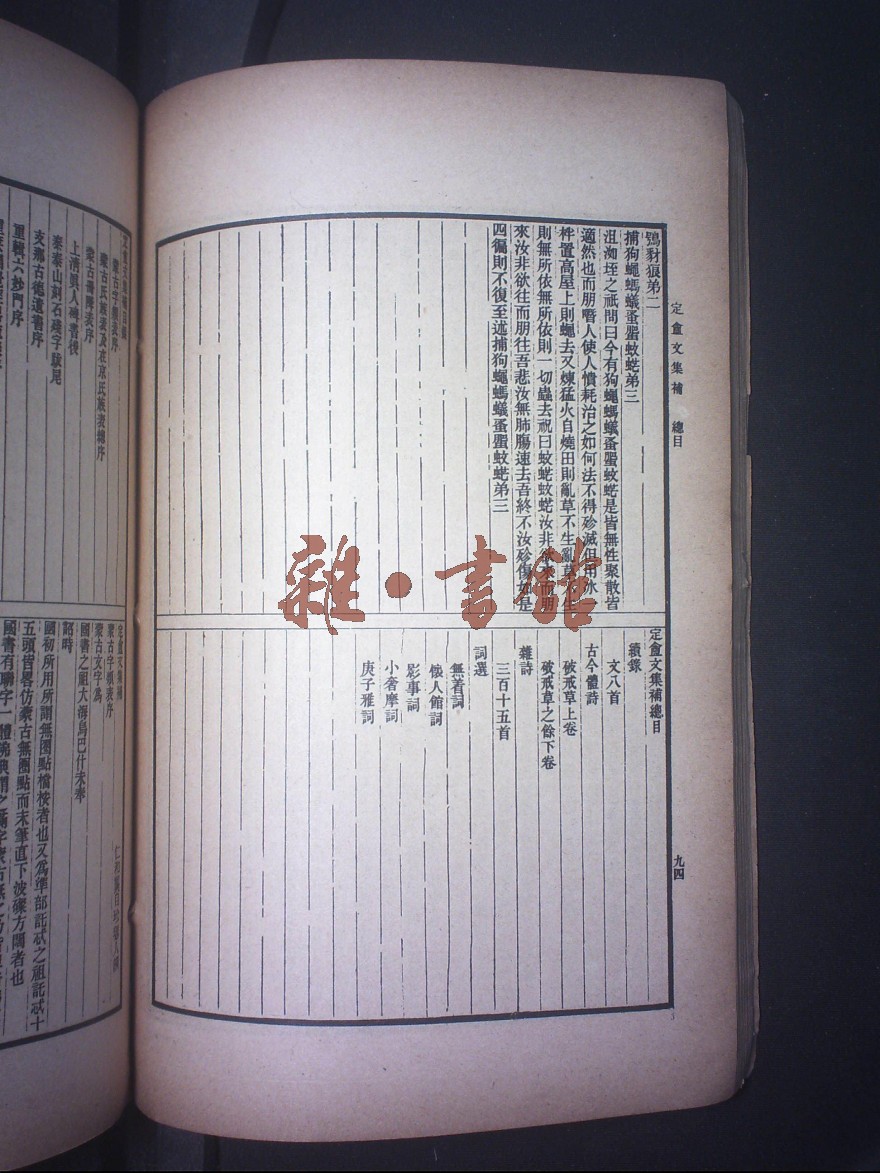 定盦文集補 總目
九四
鴞豺狼弟二
捕狗蠅螞蟻蚤蜰蚊蜣弟三
沮洳垤之祇問曰今有狗蠅螞蟻蚤蜰蚊蜣是皆無性聚散皆
適然也而朋噆人使人憒耗治之如何法不得殄滅但用冰一
柈置高屋上則蠅去又煉猛火自燒田則亂草不生亂草不生
則無所依無所依則一切蟲去祝曰蚊蜣蚊蜣汝非欲來而朋
來汝非欲往而朋往吾悲汝無肺腸速去吾終不汝殄傷如是
四徧則不復至述捕狗蠅螞蟻蚤蜰蚊蜣弟三
定盦文集補總目
續錄
文八首
古今體詩
破戒草上卷
破戒草之餘下卷
雜詩
三百十五首
詞選
無著詞
懷人館詞
影事詞
小奢摩詞
庚子雅詞
雜·書館
蒙古字類表序
蒙古氏族表及在京氏族表總序
蒙古冊降表序
上清眞人碑書後
秦泰山刻石殘字跋尾
支那古德遺書序
重輯六妙門序
定盦文集補
蒙古字類表序
蒙古文字爲
國書之祖大海烏巴什未奉
詔時
國初所用所謂無圈點檔桉者也又爲準部託忒之祖託忒十
五頭皆畧仿蒙古無圈點而末筆直下波磔方闊者也